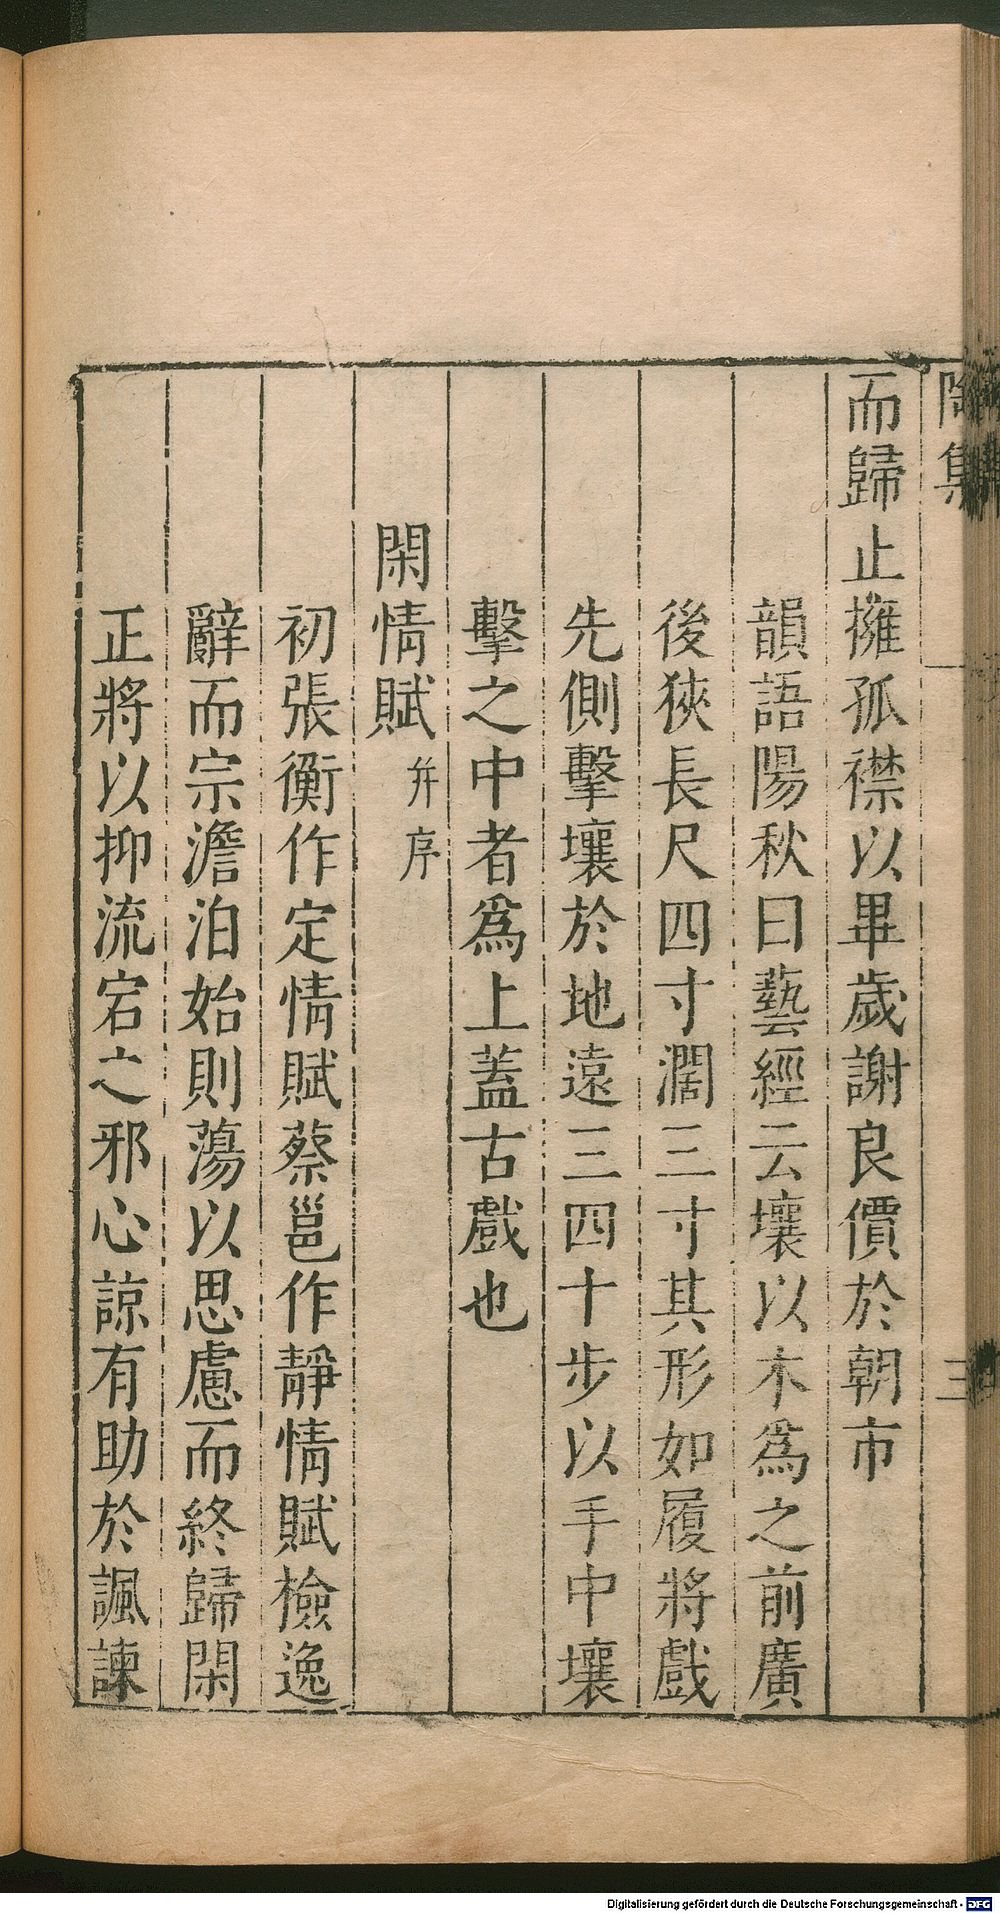 陶集
三
而歸止擁孤襟以畢歲謝良價於朝市
韻語陽秋曰藝經云壤以木爲之前廣
後狹長尺四寸濶三寸其形如履將戲
先側擊壤於地遠三四十步以手中壤
擊之中者爲上蓋古戲也
閑情賦 并序
初張衡作定情賦蔡邕作靜情賦檢逸
辭而宗澹泊始則蕩以思慮而終歸閑
正將以抑流宕之邪心諒有助於諷諫
Digitalisierung gefördert durch die Deutsche Forschungsgemeinschaft - DFG